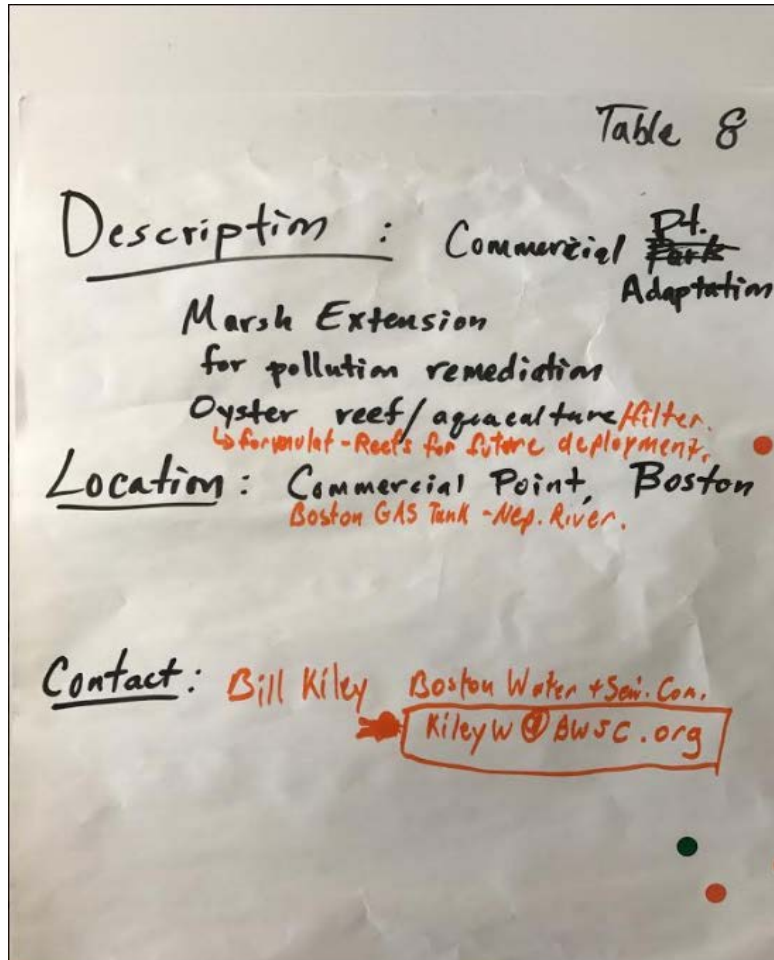 Table 8
Description : Commercial Pt.
Adaptation
Marsh Extension
for pollution remediation
Oyster reef/aquaculture/filter.
↳ formulat - Reefs for future deployment.
Location : Commercial Point, Boston
Boston GAS Tank - Nep. River.
Contact : Bill Kiley Boston Water + Sew. Com.
KileyW@BWSC.org